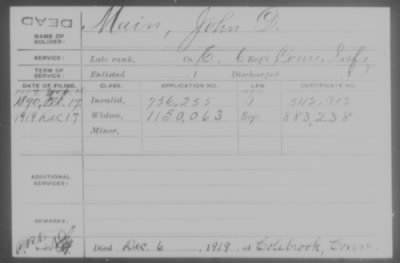 DEAD
NAME OF SOLDIER: Main, John D.
SERVICE: Late rank, Co. E, 6 Reg't Conn. Inf.
TERM OF SERVICE: Enlisted , 1 Discharged , 1
DATE OF FILING. CLASS. APPLICATION NO. LAW. CERTIFICATE NO.
1890, 17 Invalid, 756,255
1919 Dec. 17 Widow, 1150,063 883,238
Minor,
ADDITIONAL SERVICES:
REMARKS:
Died Dec. 6, 1919, at Colebrook, Conn.